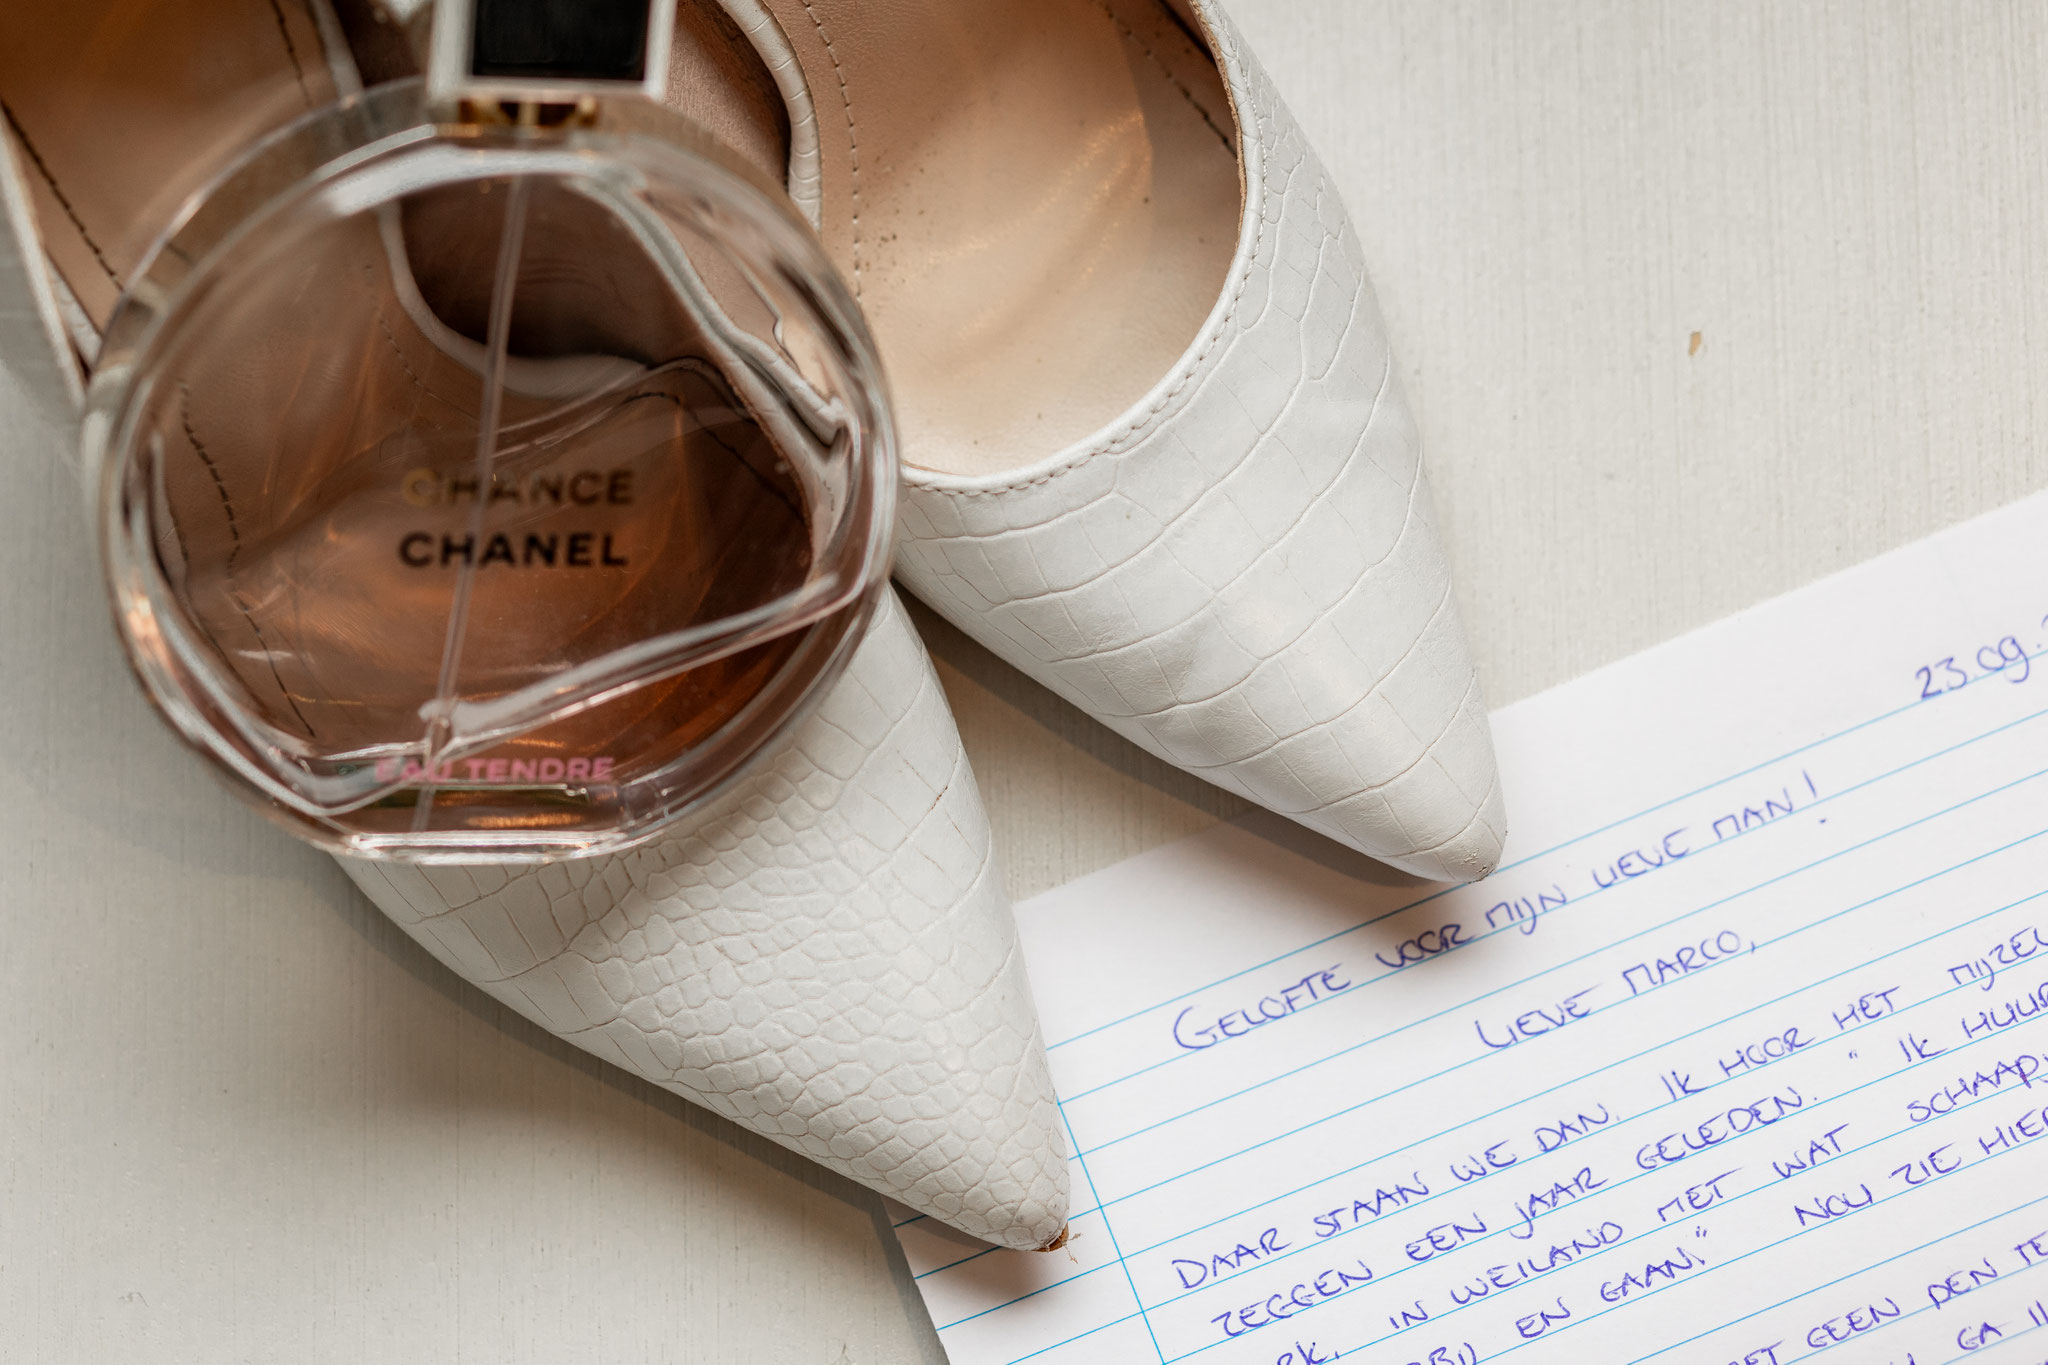 CHANCE
CHANEL
EAU TENDRE
23.09.
GELOFTE VOOR MIJN LIEVE MAN!
LIEVE MARCO,
DAAR STAAN WE DAN. IK HOOR HET MIJZEL
ZEGGEN EEN JAAR GELEDEN. " IK HUUR
IN WEILAND MET WAT SCHAAPJ
EN GAAN." NOU ZIE HIER
GEEN DEN TE
GA